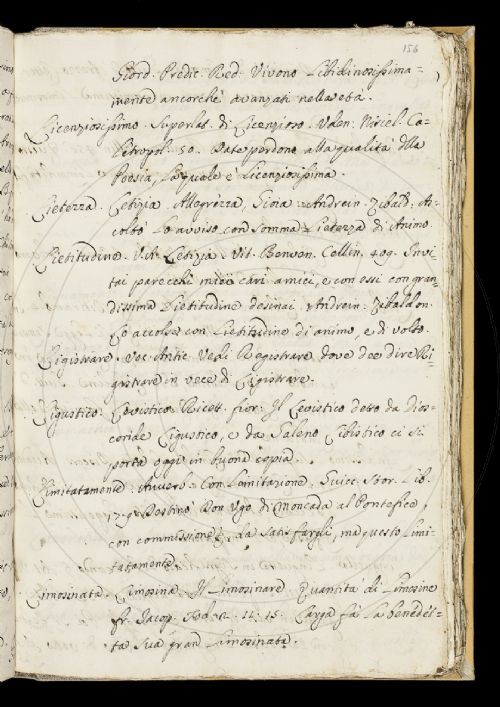 156
Giord. Predic. Red. Vivono Libidinosissima=
mente ancorchè avanzati nella età.
Licenziosissimo. Superlat. di Licenzioso. Uden. Nisiel. Ca-
Petropol. 50. Date perdono alla qualità della
Poesia, La quale è Licenziosissima.
Lietezza. Letizia. Allegrezza, Gioia. Andrein. Zibald. A-
colto Lo avviso con somma Lietezza di Animo.
Lietitudine. V.A. Letizia. Vit. Benven. Cellin. 409. Invi-
tai parecchi miei cari amici, e con essi con gran-
dissima Lietitudine desinai. Andrein. Zibaldon.
Lo accolse con Lietitudine di animo, e di volto.
Ligistrare. Voc. Antic. Vedi Registrare dove dee dire Ri-
gistrare in vece di Ligistrare.
Ligustico. Levistico. Ricett. fior. Il Levistico detto da Dios-
coride Ligustico, e da Galeno Libistico ci si
porta oggi in buona copia.
Limitatamente. Avverb. Con Limitazione. Guicc. Stor. Lib.
17. Destinò Don Ugo di Moncada al Pontefice,
con commissione da satisfargli, ma questo Limi-
tatamente.
Limosinata. Limosina. Il Limosinare. Quantità di Limosine
fr. Jacop. Tod. 2. 11. 15. Larga fa La benedet-
ta Sua gran Limosinata.